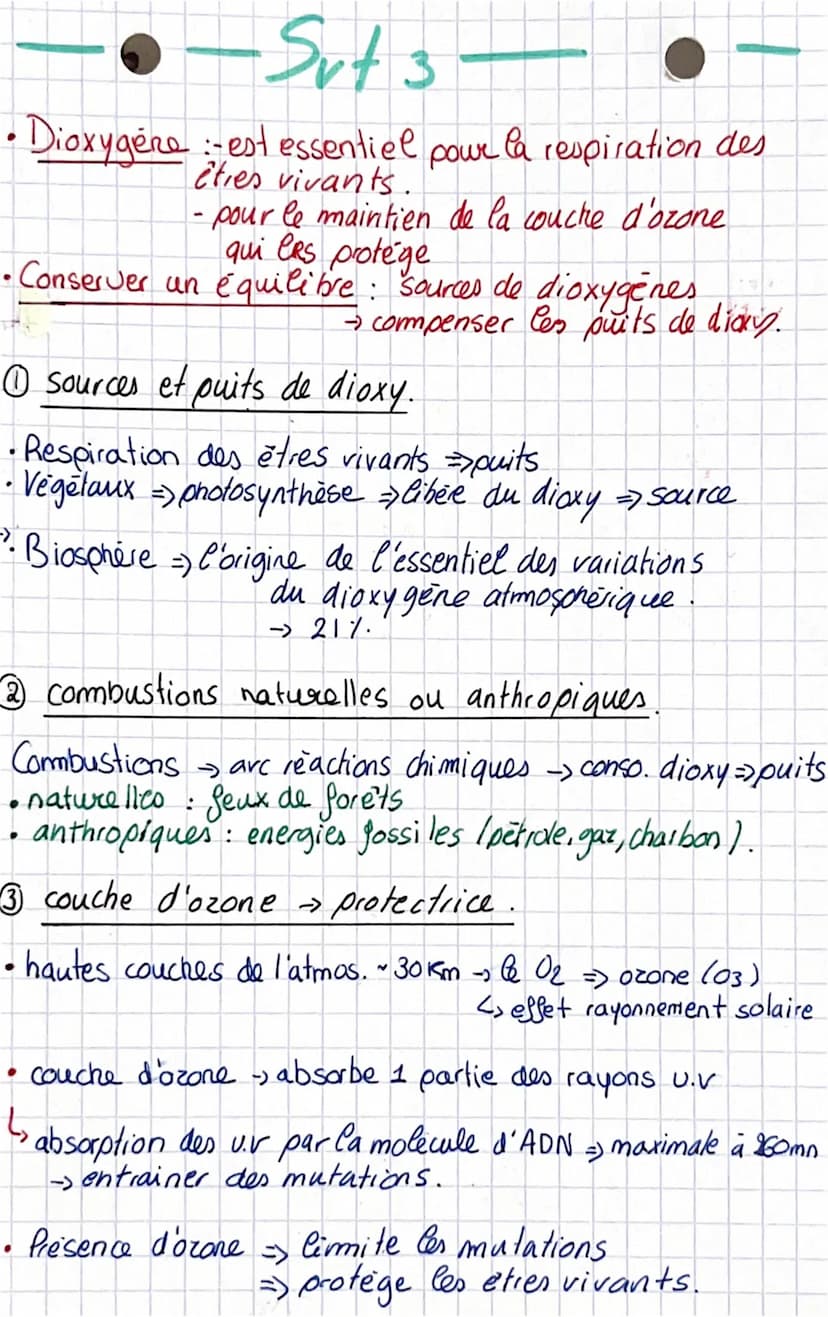 Svt 3
• Dioxygène :- est essentiel pour la respiration des
êtres vivants.
- pour le maintien de la couche d'ozone
qui les protège
• Conserver un équilibre : sources de dioxygènes
→ compenser les puits de dioxy.
① sources et puits de dioxy.
• Respiration des êtres vivants ⇒ puits
• Végétaux ⇒ photosynthèse ⇒ libée du dioxy ⇒ source
• Biosphère ⇒ l'origine de l'essentiel des variations
du dioxygène atmosphérique.
→ 21%.
② combustions naturelles ou anthropiques.
Combustions → avc réactions chimiques → conso. dioxy ⇒ puits
• naturelles : feux de forêts
• anthropiques : energies fossiles (pétrole, gaz, charbon).
③ couche d'ozone → protectrice.
• hautes couches de l'atmos. ~ 30 Km → le O2 ⇒ ozone (O3)
↳ effet rayonnement solaire
• couche d'ozone → absorbe 1 partie des rayons u.v
↳ absorption des u.v par la molécule d'ADN ⇒ maximale à 260mn
→ entrainer des mutations.
• Présence d'ozone ⇒ limite les mutations
⇒ protège les êtres vivants.